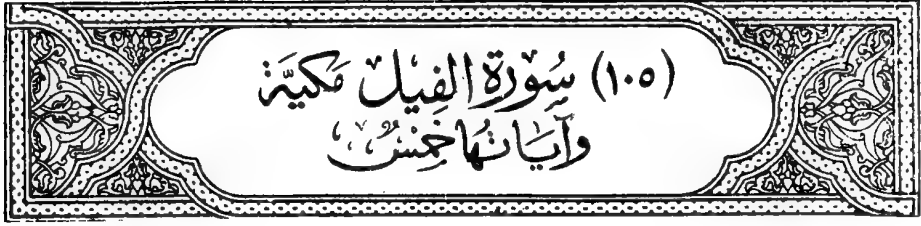 (١٠٥) سُورَةِ الفِيلِ مَكيَّة
وَآيَاتُها خَمْسٌ